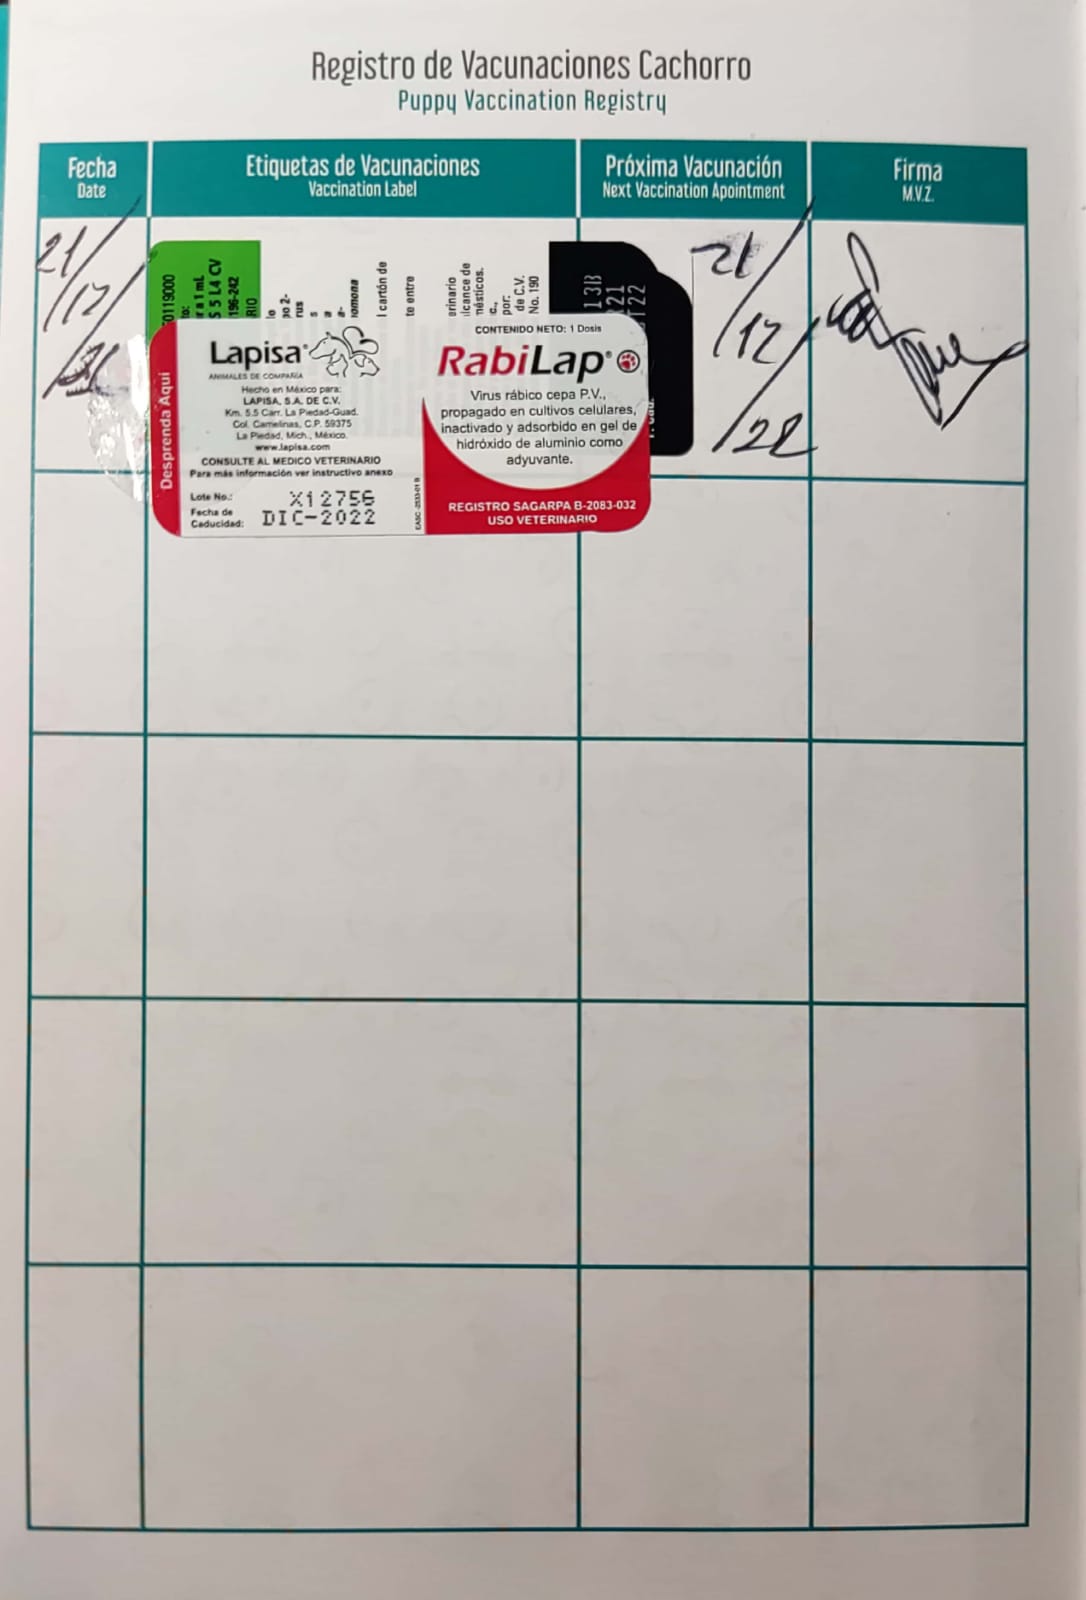 Registro de Vacunaciones Cachorro
Puppy Vaccination Registry
Fecha
Date
Etiquetas de Vacunaciones
Vaccination Label
Próxima Vacunación
Next Vaccination Apointment
Firma
M.V.Z.
21/
/12/
/21
0119000
a 1 mL
5 L4 CV
196-242
RIO
l cartón de
te entre
de C.V.
No. 190
13B
21
T22
Desprenda Aquí
Lapisa®
ANIMALES DE COMPAÑÍA
Hecho en México para:
LAPISA, S.A. DE C.V.
Km. 5.5 Carr. La Piedad-Guad.
Col. Camelinas, C.P. 59375
La Piedad, Mich., México.
www.lapisa.com
CONSULTE AL MEDICO VETERINARIO
Para más información ver instructivo anexo
Lote No.: X12756
Fecha de
Caducidad: DIC-2022
CONTENIDO NETO: 1 Dosis
RabiLap®
Virus rábico cepa P.V.,
propagado en cultivos celulares,
inactivado y adsorbido en gel de
hidróxido de aluminio como
adyuvante.
REGISTRO SAGARPA B-2083-032
USO VETERINARIO
21/
/12/
/22